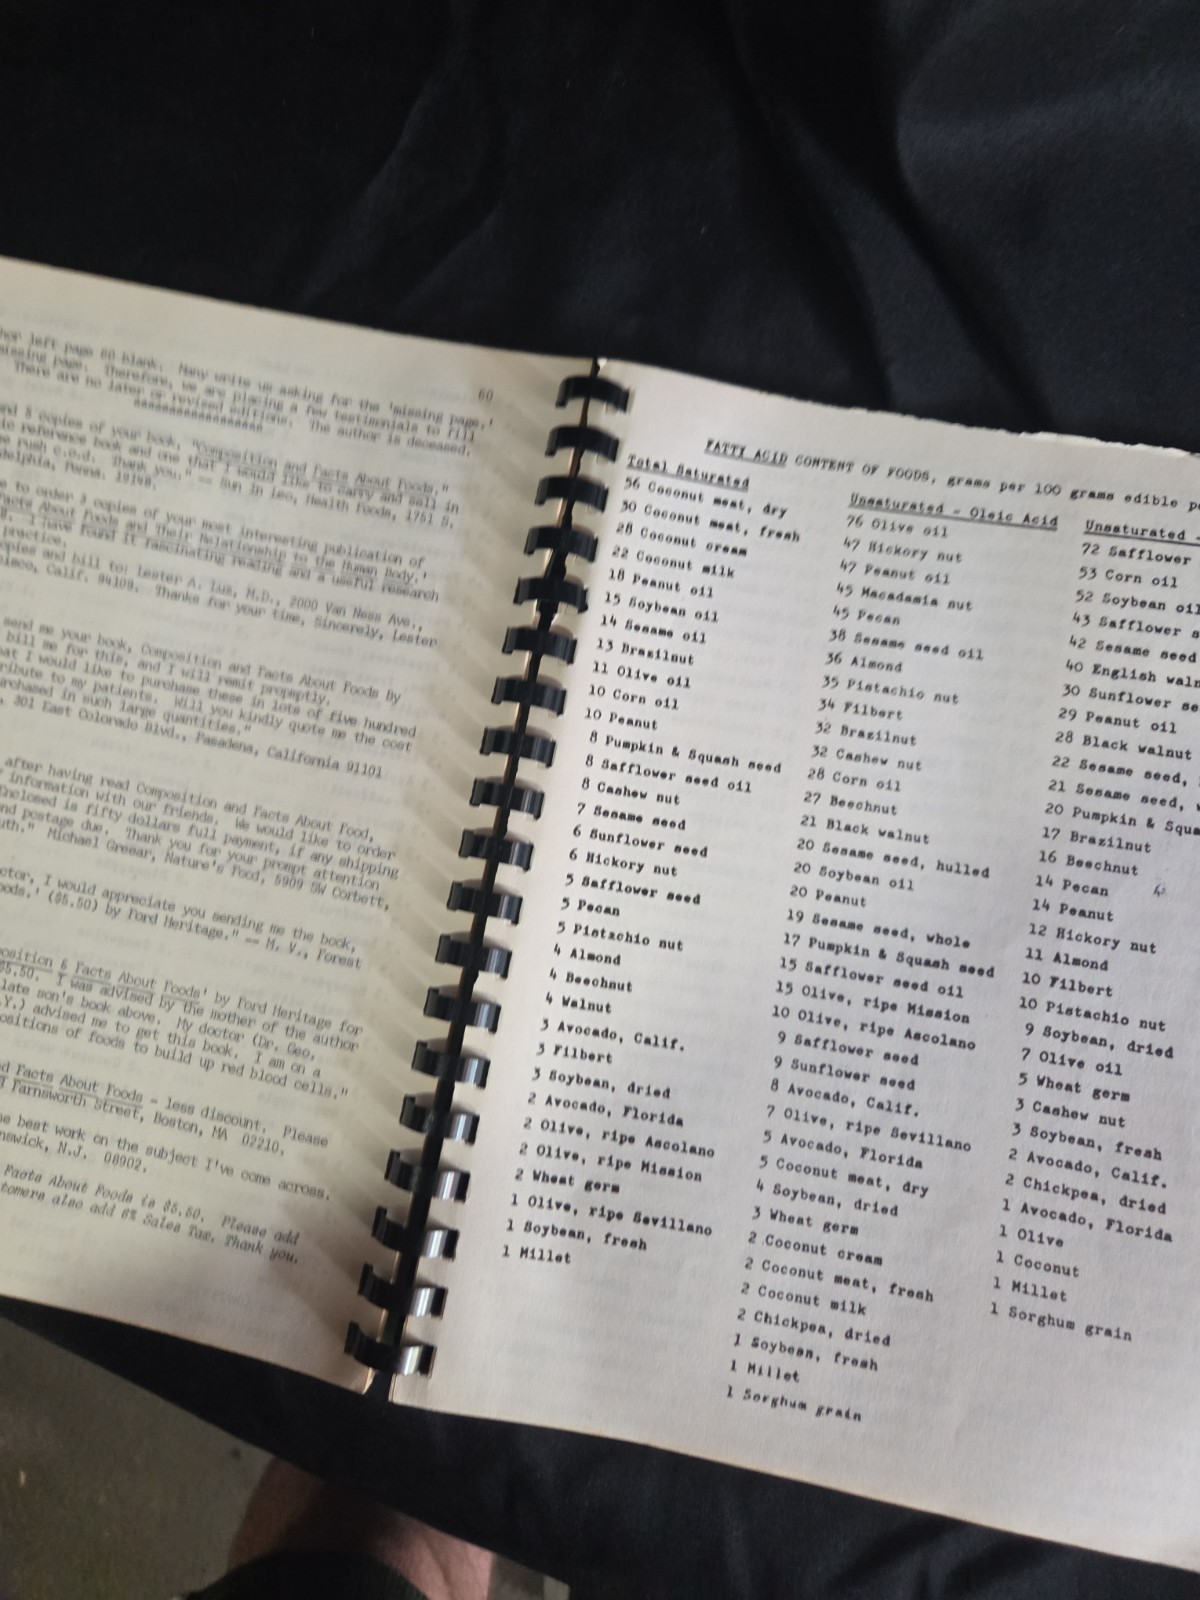 60
hor left page 60 blank. Many write us asking for the 'missing page.'
missing page. Therefore, we are placing a few testimonials to fill
There are no later or revised editions. The author is deceased.
nd 5 copies of your book, "Composition and Facts About Foods,"
ic reference book and one that I would like to carry and sell in
e rush c.o.d. Thank you." -- Sun In Leo, Health Foods, 1751 S.
delphia, Penna.
e to order 3 copies of your most interesting publication of
Facts About Foods and Their Relationship to the Human Body.'
I have found it fascinating reading and a useful research
practice.
opies and bill to: Lester A. Lus, M.D., 2000 Van Ness Ave.,
isco, Calif. 94109. Thanks for your time, Sincerely, Lester
send me your book, Composition and Facts About Foods By
bill me for this, and I will remit promptly.
at I would like to purchase these in lots of five hundred
ribute to my patients. Will you kindly quote me the cost
rchased in such large quantities."
, 301 East Colorado Blvd., Pasadena, California 91101
after having read Composition and Facts About Food,
information with our friends. We would like to order
Enclosed is fifty dollars full payment, if any shipping
nd postage due. Thank you for your prompt attention
uth." Michael Greear, Nature's Food, 5909 SW Corbett,
ctor, I would appreciate you sending me the book,
oods.' ($5.50) by Ford Heritage." -- M. V., Forest
position & Facts About Foods' by Ford Heritage for
$5.50. I was advised by the mother of the author
late son's book above. My doctor (Dr. Geo.
.Y.) advised me to get this book. I am on a
positions of foods to build up red blood cells."
d Facts About Foods - less discount. Please
Farnsworth Street, Boston, MA 02210.
he best work on the subject I've come across.
nswick, N.J. 08902.
Facts About Foods is $5.50. Please add
tomers also add 6% Sales Tax. Thank you.
FATTY ACID CONTENT OF FOODS, grams per 100 grams edible po
Total Saturated
56 Coconut meat, dry
30 Coconut meat, fresh
28 Coconut cream
22 Coconut milk
18 Peanut oil
15 Soybean oil
14 Sesame oil
13 Brazilnut
11 Olive oil
10 Corn oil
10 Peanut
8 Pumpkin & Squash seed
8 Safflower seed oil
8 Cashew nut
7 Sesame seed
6 Sunflower seed
6 Hickory nut
5 Safflower seed
5 Pecan
5 Pistachio nut
4 Almond
4 Beechnut
4 Walnut
3 Avocado, Calif.
3 Filbert
3 Soybean, dried
2 Avocado, Florida
2 Olive, ripe Ascolano
2 Olive, ripe Mission
2 Wheat germ
1 Olive, ripe Sevillano
1 Soybean, fresh
1 Millet
Unsaturated - Oleic Acid
76 Olive oil
47 Hickory nut
47 Peanut oil
45 Macadamia nut
45 Pecan
38 Sesame seed oil
36 Almond
35 Pistachio nut
34 Filbert
32 Brazilnut
32 Cashew nut
28 Corn oil
27 Beechnut
21 Black walnut
20 Sesame seed, hulled
20 Soybean oil
20 Peanut
19 Sesame seed, whole
17 Pumpkin & Squash seed
15 Safflower seed oil
15 Olive, ripe Mission
10 Olive, ripe Ascolano
9 Safflower seed
9 Sunflower seed
8 Avocado, Calif.
7 Olive, ripe Sevillano
5 Avocado, Florida
5 Coconut meat, dry
4 Soybean, dried
3 Wheat germ
2 Coconut cream
2 Coconut meat, fresh
2 Coconut milk
2 Chickpea, dried
1 Soybean, fresh
1 Millet
1 Sorghum grain
Unsaturated -
72 Safflower
53 Corn oil
52 Soybean oil
43 Safflower s
42 Sesame seed
40 English waln
30 Sunflower se
29 Peanut oil
28 Black walnut
22 Sesame seed,
21 Sesame seed, w
20 Pumpkin & Squa
17 Brazilnut
16 Beechnut
14 Pecan
14 Peanut
12 Hickory nut
11 Almond
10 Filbert
10 Pistachio nut
9 Soybean, dried
7 Olive oil
5 Wheat germ
3 Cashew nut
3 Soybean, fresh
2 Avocado, Calif.
2 Chickpea, dried
1 Avocado, Florida
1 Olive
1 Coconut
1 Millet
1 Sorghum grain